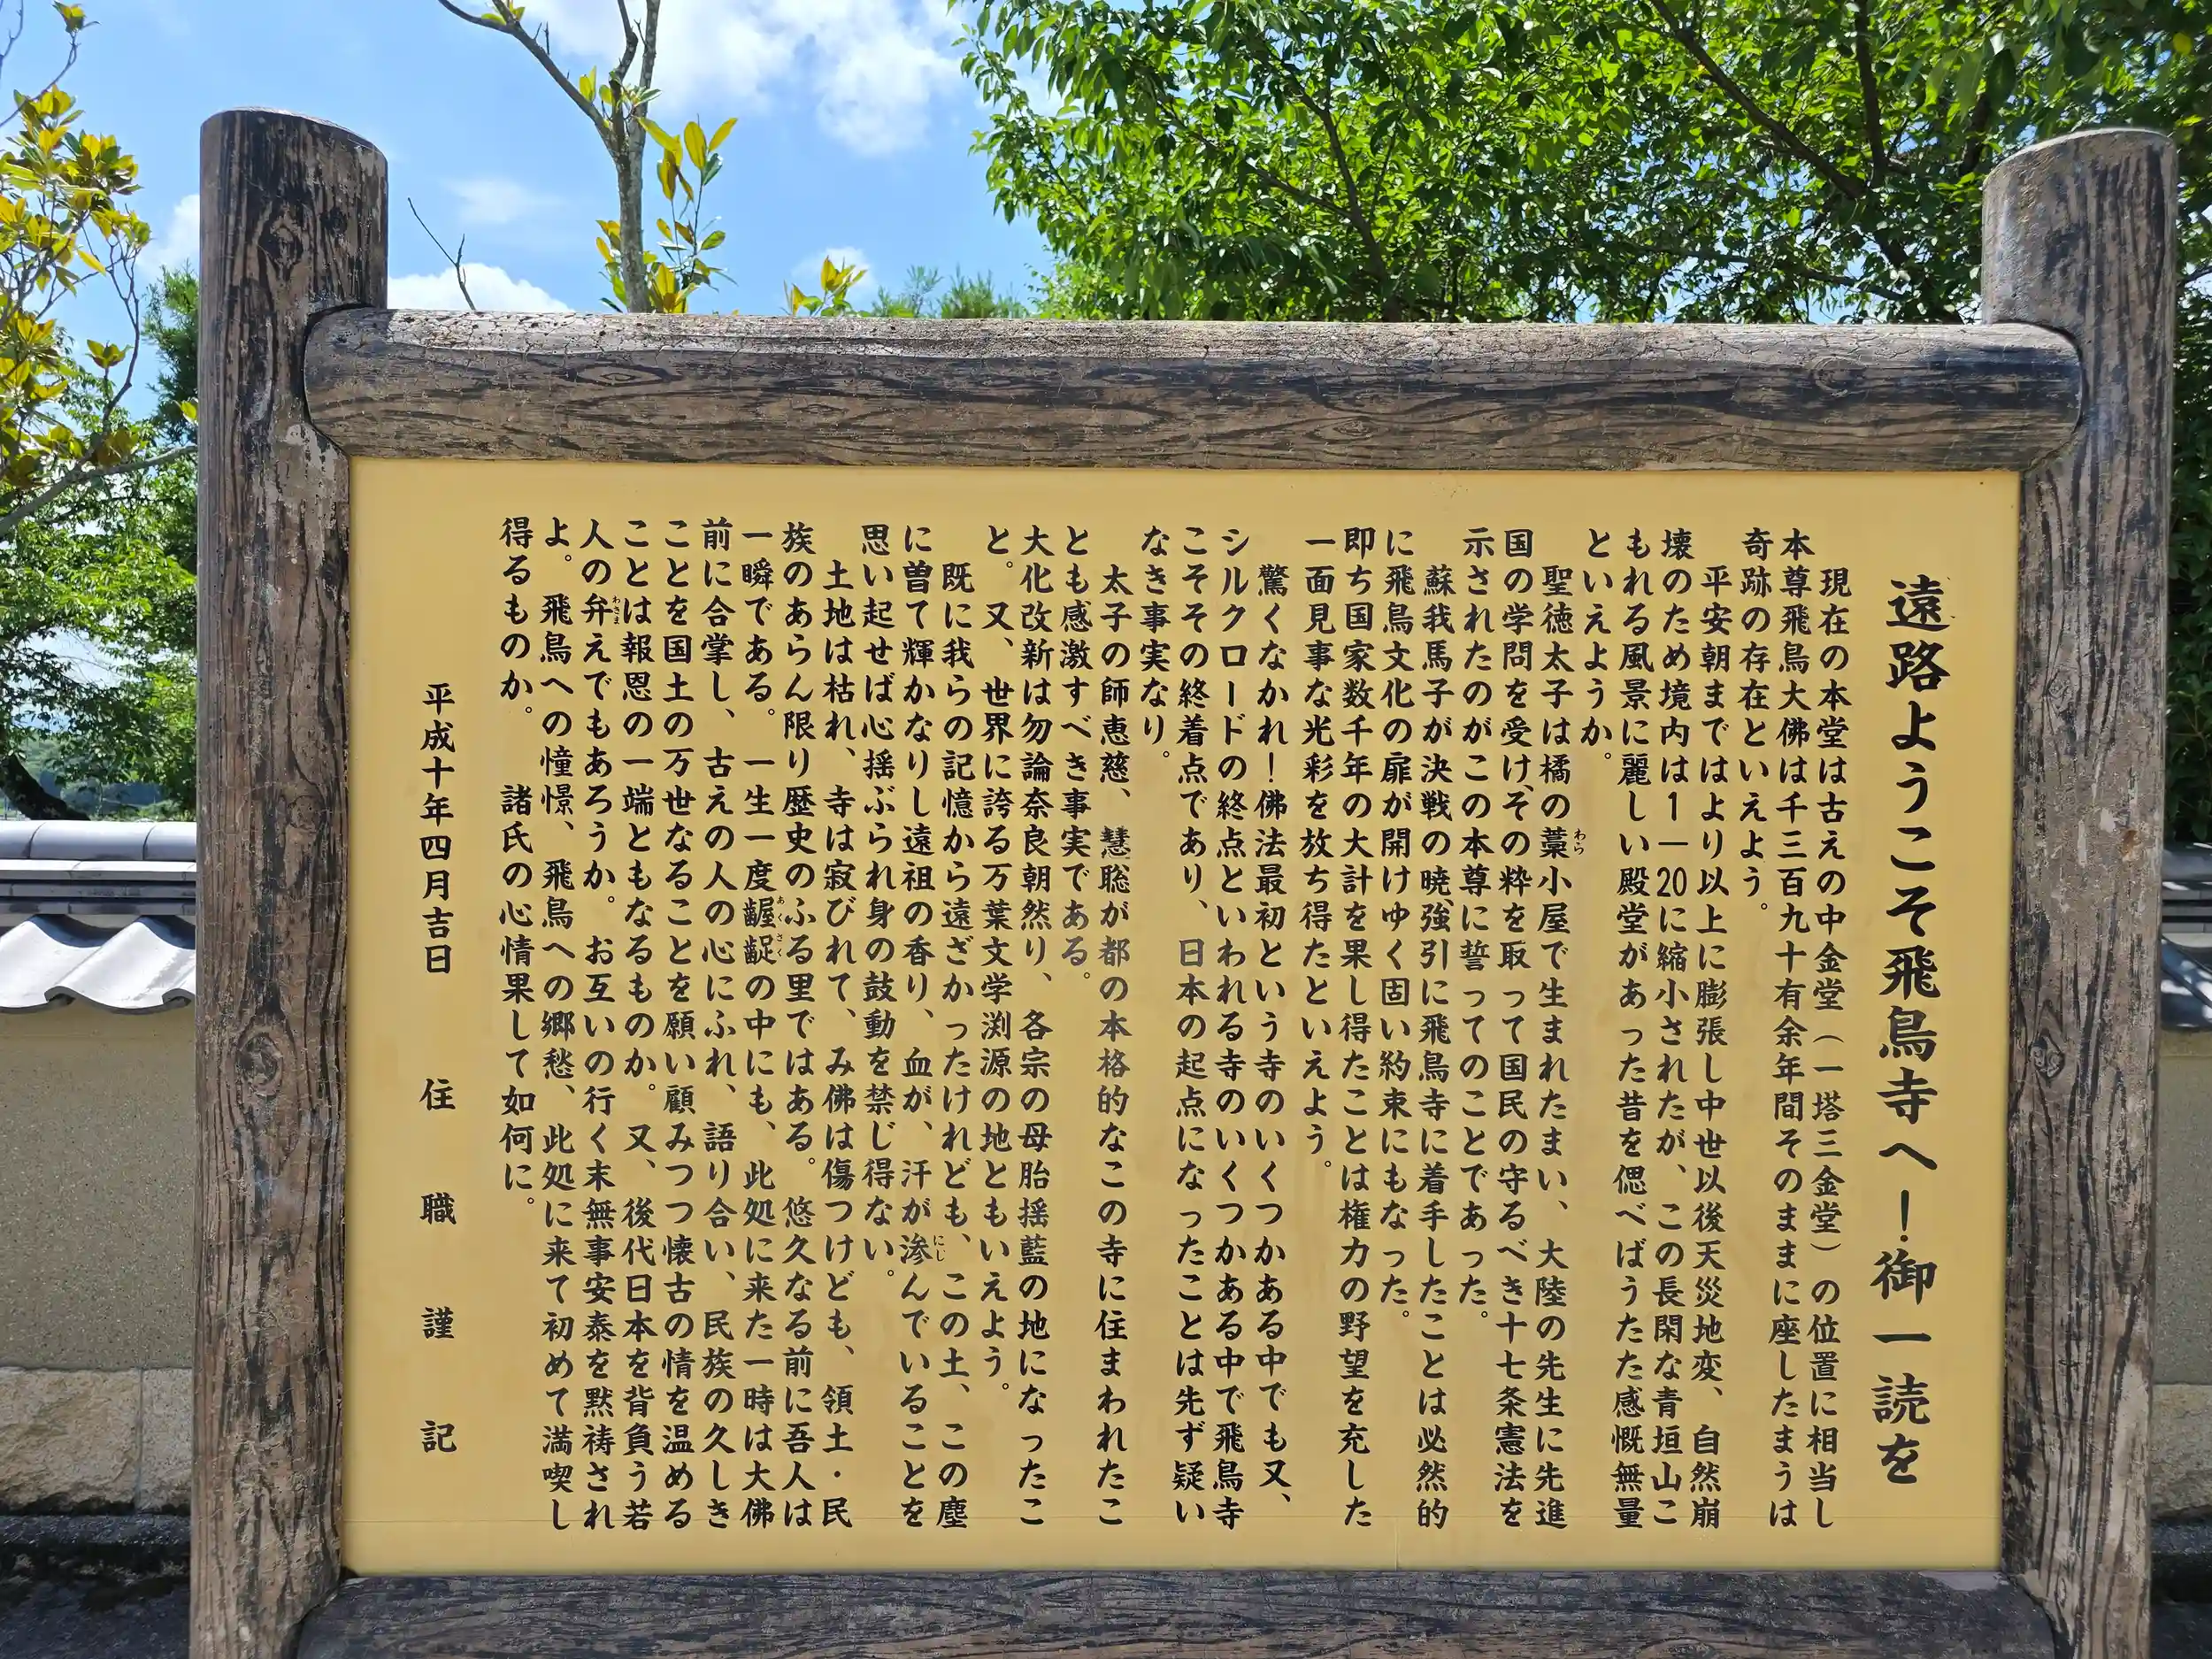 遠路ようこそ飛鳥寺へ！御一読を
現在の本堂は古えの中金堂（一塔三金堂）の位置に相当し
本尊飛鳥大佛は千三百九十有余年間そのままに座したまうは
奇跡の存在といえよう。
平安朝まではより以上に膨張し中世以後天災地変、自然崩
壊のため境内は1―20に縮小されたが、この長閑な青垣山こ
もれる風景に麗しい殿堂があった昔を偲べばうたた感慨無量
といえようか。
聖徳太子は橘の藁小屋で生まれたまい、大陸の先生に先進
国の学問を受け、その粋を取って国民の守るべき十七条憲法を
示されたのがこの本尊に誓ってのことであった。
蘇我馬子が決戦の暁、強引に飛鳥寺に着手したことは必然的
に飛鳥文化の扉が開けゆく固い約束にもなった。
即ち国家数千年の大計を果し得たことは権力の野望を充した
一面見事な光彩を放ち得たといえよう。
驚くなかれ！佛法最初という寺のいくつかある中でも又、
シルクロードの終点といわれる寺のいくつかある中で飛鳥寺
こそその終着点であり、日本の起点になったことは先ず疑い
なき事実なり。
太子の師恵慈、慧聡が都の本格的なこの寺に住まわれたこ
とも感激すべき事実である。
大化改新は勿論奈良朝然り、各宗の母胎揺藍の地になったこ
と。又、世界に誇る万葉文学渕源の地ともいえよう。
既に我らの記憶から遠ざかったけれども、この土、この塵
に曽て輝かなりし遠祖の香り、血が、汗が滲んでいることを
思い起せば心揺ぶられ身の鼓動を禁じ得ない。
土地は枯れ、寺は寂びれて、み佛は傷つけども、領土・民
族のあらん限り歴史のふる里ではある。悠久なる前に吾人は
一瞬である。一生一度齷齪の中にも、此処に来た一時は大佛
前に合掌し、古えの人の心にふれ、語り合い、民族の久しき
ことを国土の万世なることを願い顧みつつ懐古の情を温める
ことは報恩の一端ともなるものか。又、後代日本を背負う若
人の弁えでもあろうか。お互いの行く末無事安泰を黙祷され
よ。飛鳥への憧憬、飛鳥への郷愁、此処に来て初めて満喫し
得るものか。　諸氏の心情果して如何に。
平成十年四月吉日　住職謹記